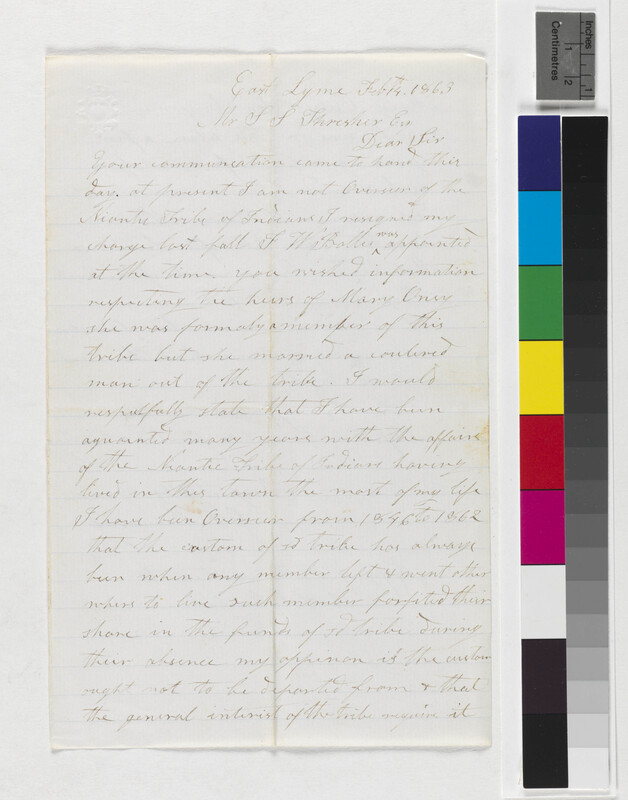 East Lyme Feb 1863
Mr S S Thresher Esq
Dear Sir
Your communcation came to hand this
day. at present I am not Overseer of the
Niantic Tribe of Indians I resigned my
charge last fall F. W. was appointed
at the time. you wished information
respecting the heirs of Mary Oney
she was formaly a member of this
tribe but she married a coulered
man out of the tribe. I would
respectfully state that I have been
aquainted many years with the affairs
of the Niantic Tribe of Indians having
lived in this town the most of my life
I have been Overseer from 1846 to 1862
that the custom of sd tribe has always
been when any member left & went other
where to live such member forfeted their
share in the funds of sd tribe during
their absence my oppinon is the custom
ought not to be departed from & that
the general interist of the tribe require it
Inches
Centimetres
1
2
1